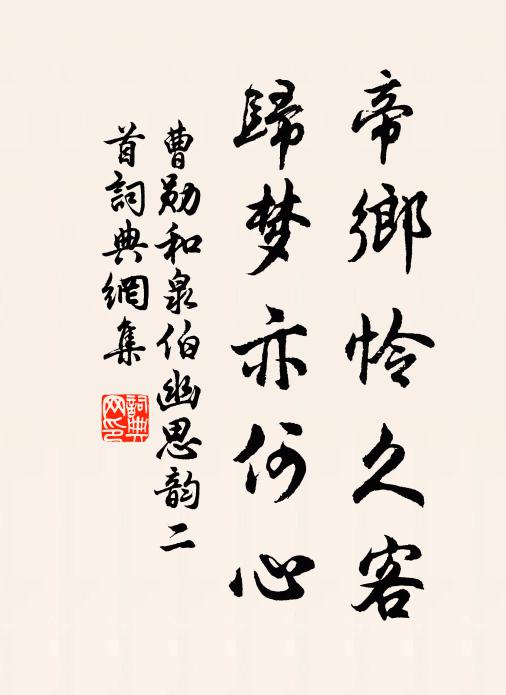 帝鄉怜久客
歸梦亦何心
曹勋和泉伯幽思韵二
首詞典網集
詞典网印